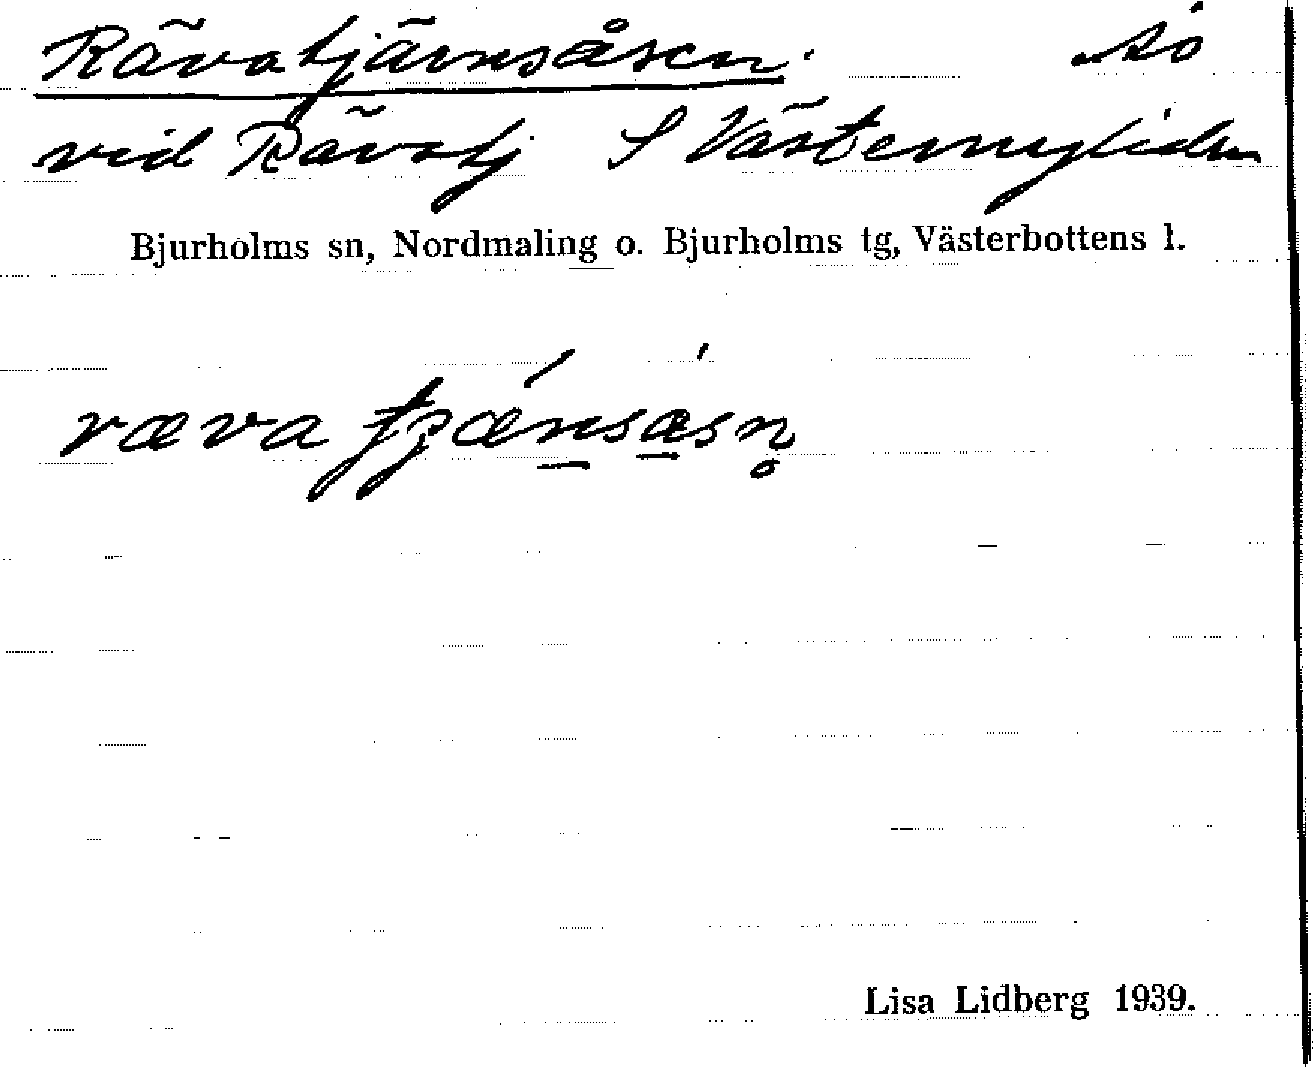 Rävatjärnsåsen. As
vid Rävatj S Västermyrliden
Bjurholms sn, Nordmaling o. Bjurholms tg, Västerbottens l.
ræva
Lisa Lidberg 1939.